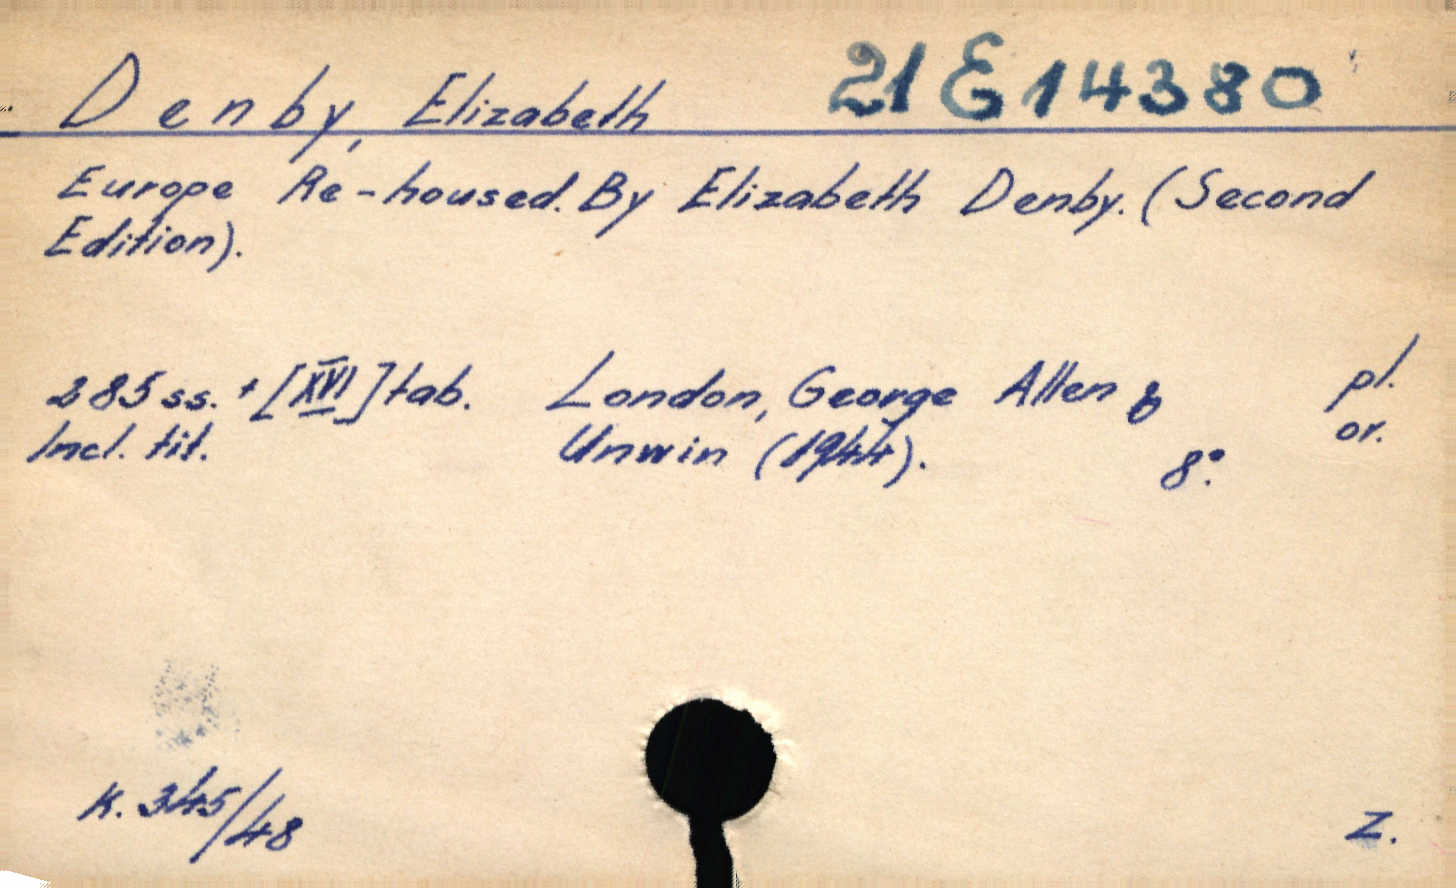 Denby, Elizabeth 21 E 14380
Europe Re-housed. By Elizabeth Denby. (Second
Edition).
285 ss. + [XVI] tab. London, George Allen & pl.
Incl. tit. Unwin (1944). 8° or.
K. 345/48 Z.